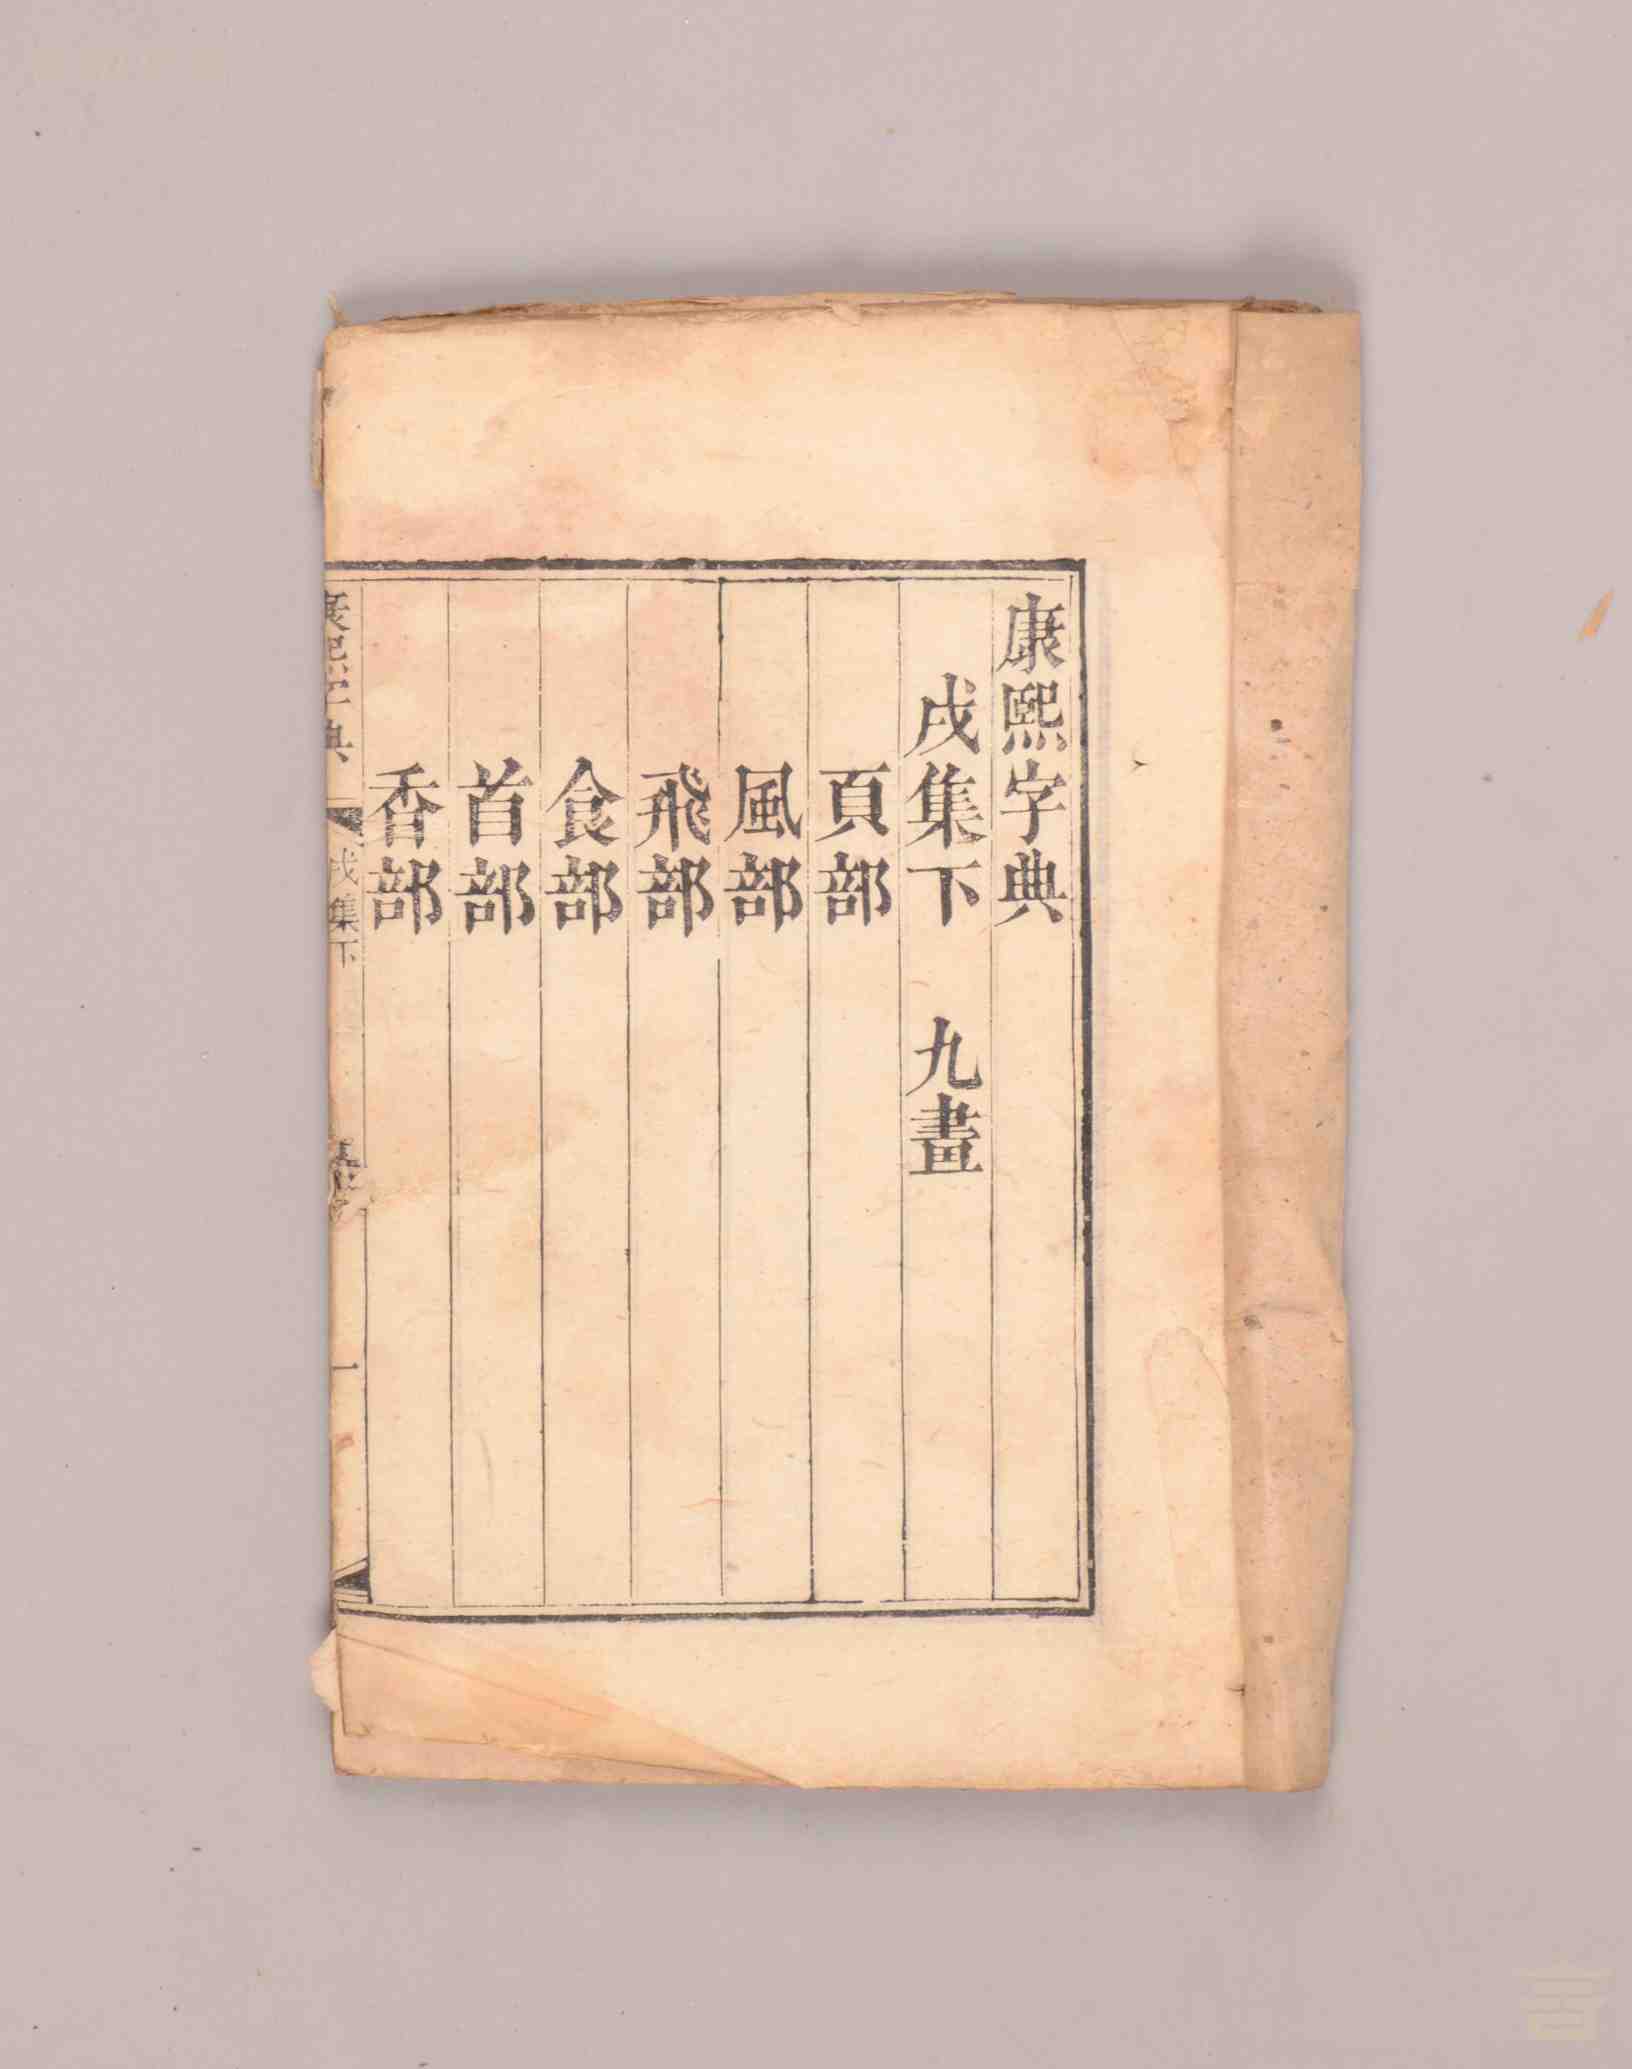 康熙字典
戌集下　九畫
頁部
風部
飛部
食部
首部
香部
康熙字典
戌集下
一